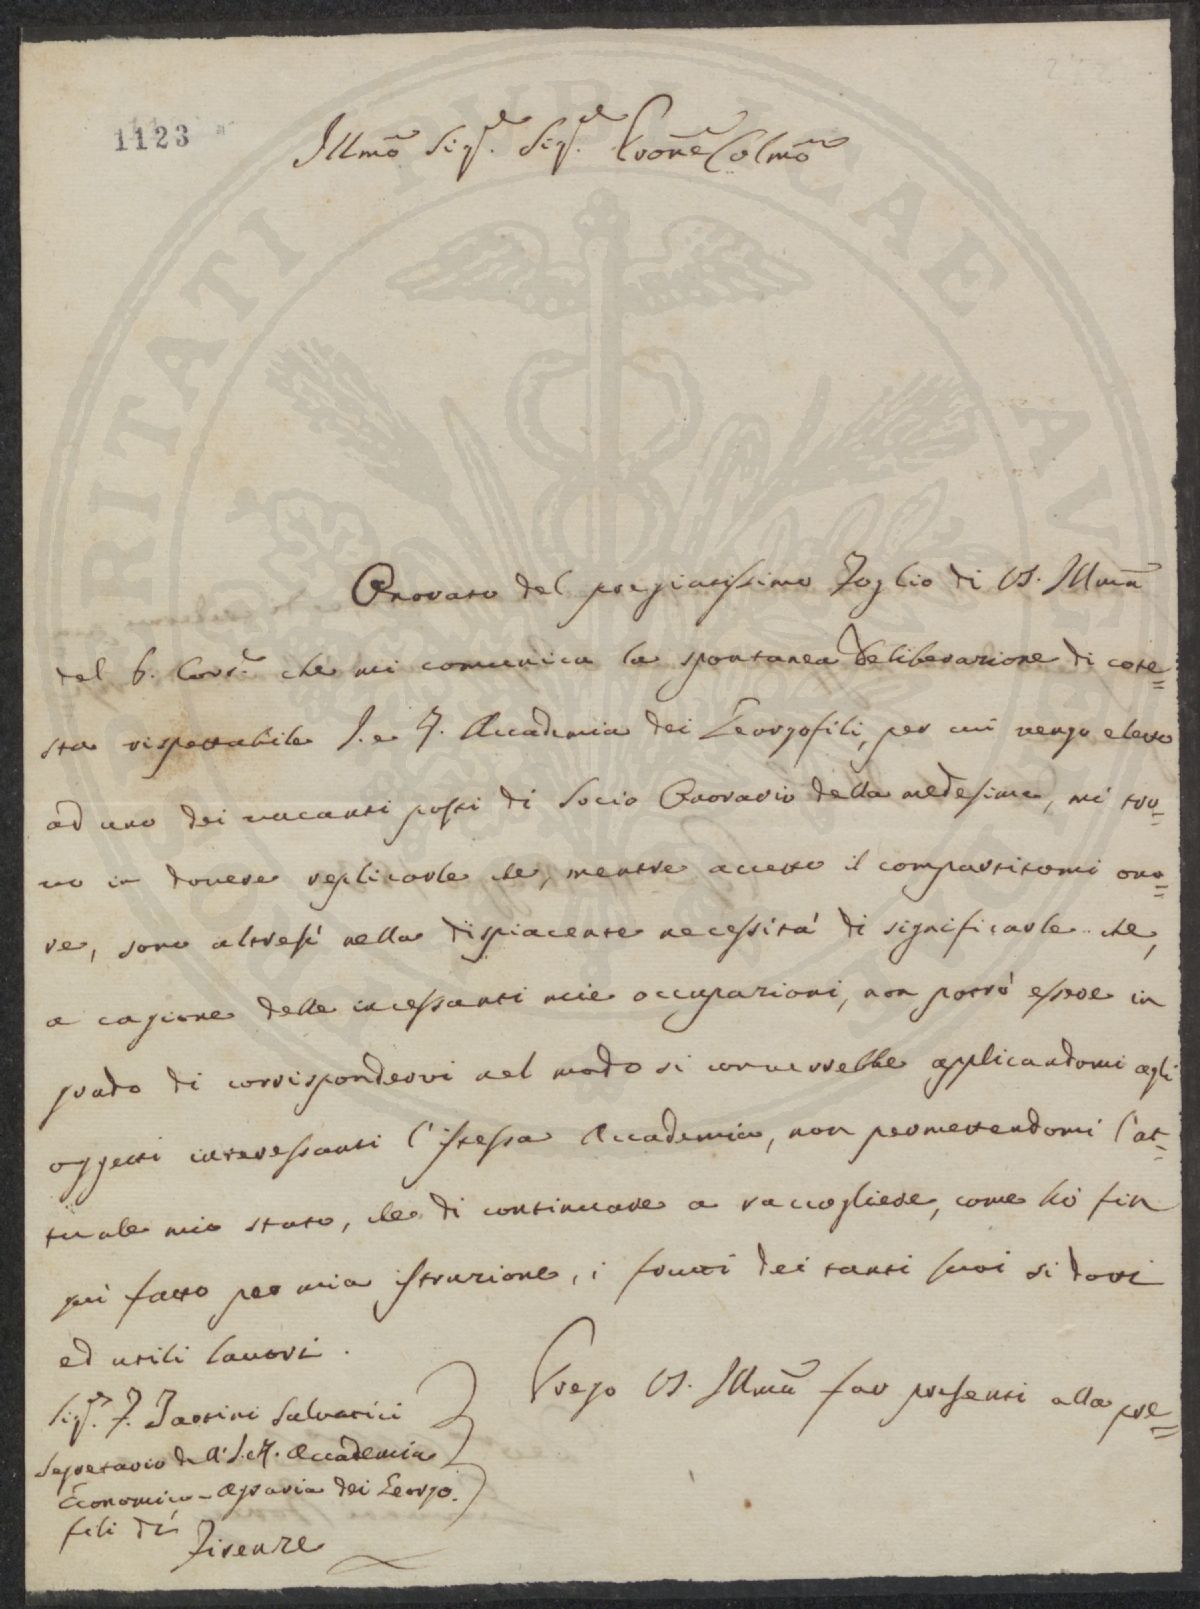 1123
Illmo Sigre. Sigre. Prone Colmo
Onorato del pregiatissimo Foglio di VS. Illma
del 6. Corre. che mi comunica la spontanea Deliberazione di cote=
sta rispettabile I. e R. Accademia dei Georgofili, per cui vengo eletto
ad uno dei vacanti posti di Socio Onorario della medesima, mi tro=
vo in dovere replicarle che, mentre accetto il compartitomi ono=
re, sono altresì nella dispiacente necessità di significarle che,
a cagione delle incessanti mie occupazioni, non potrò essere in
grado di corrispondervi nel modo si converrebbe applicandomi agli
oggetti interessanti l'istessa Accademia, non permettendomi l'at=
tuale mio stato, che di continuare a raccogliere, come hò fin
quì fatto per mia istruzione, i frutti dei tanti suoi sì dotti
ed utili lavori.
Prego VS. Illma far presenti alla pre=
Sigre. F. Tartini Salvatici
Segretario dell'I. e R. Accademia
Economico-Agraria dei Georgo.
fili di
Firenze
PUBLICAE